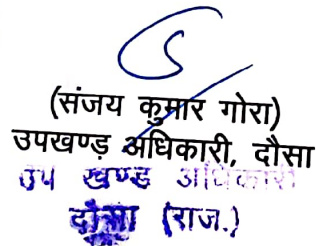 (संजय कुमार गोरा)
उपखण्ड़ अधिकारी, दौसा
उप खण्ड अधिकारी
दौसा (राज.)